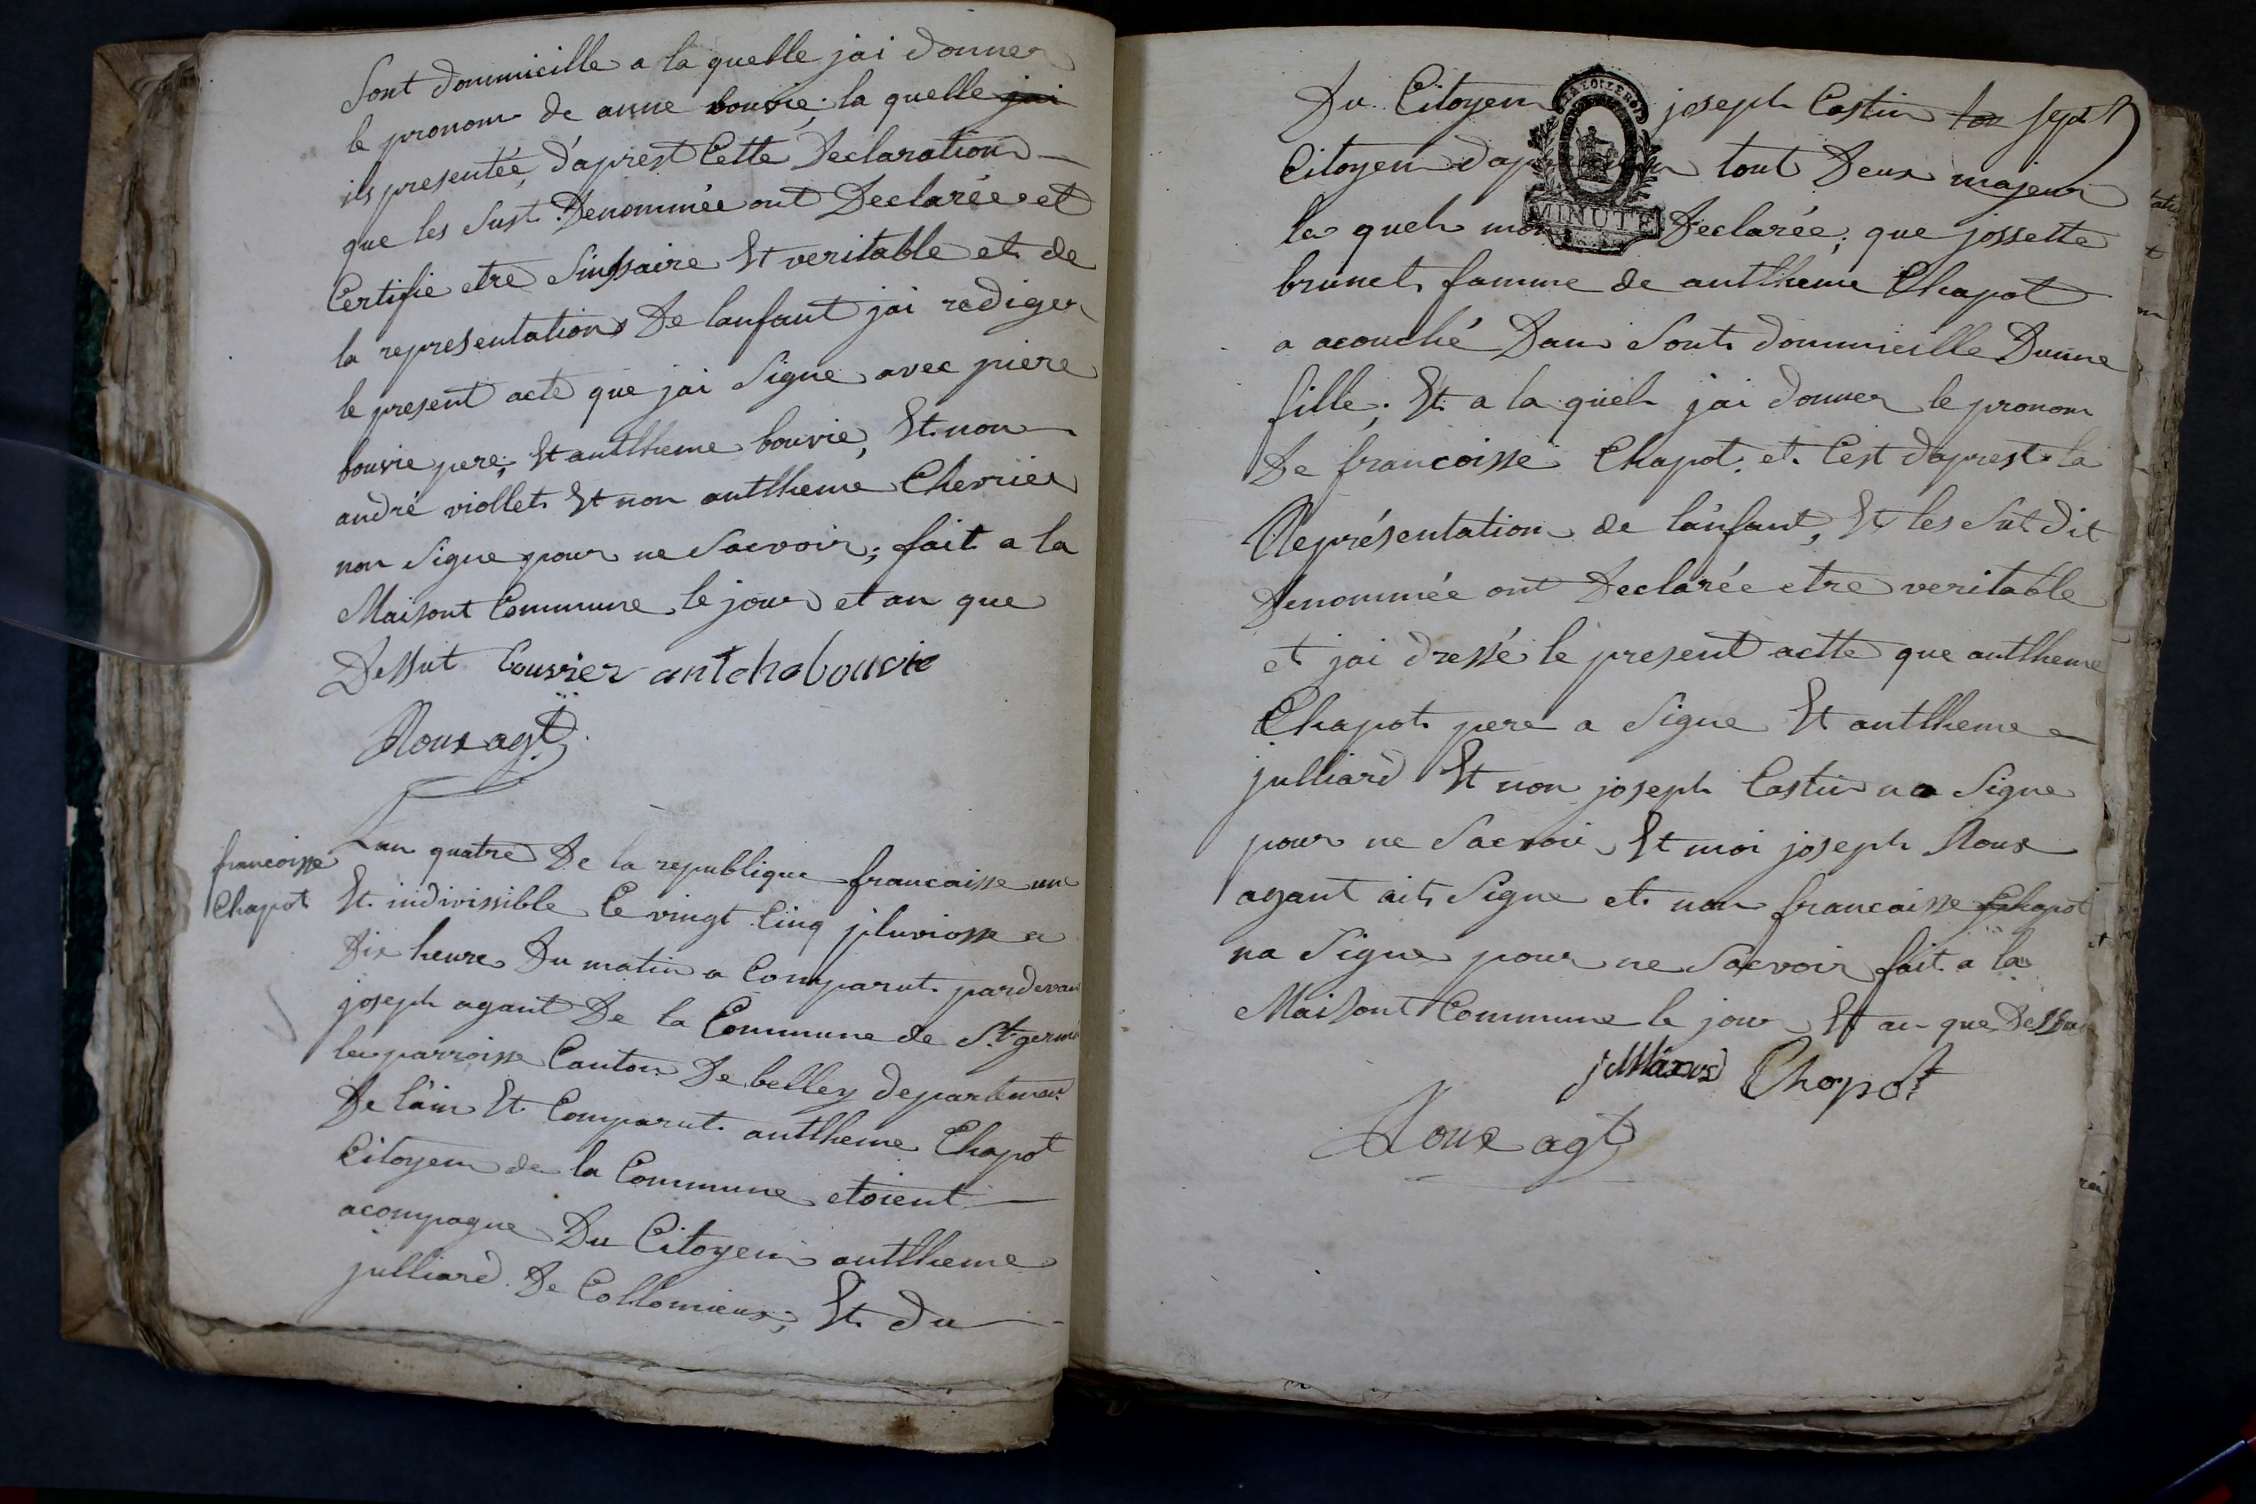 Sont dommicille a la quelle jai donner
le pronom de anne bouvie; la quelle jai
ils presentée, d'aprest Cette Declaration
que les Sust Denommée ont Declarée et
Certifie etre Sinssaire Et veritable et de
la representation De lanfant jai rediger
le present acte que jai Signe avec piere
bouvie pere; Et anthheme bouvie, Et non
andré viollet Et non anthheme Chevrier
non Signe pour ne Saevoir; fait a la
Maisont Commune le jour et an que
Dessut bouvier antehe bouvie
Roux agt
francoisse
Chapot
Lan quatre De la republique francaisse une
Et indivissible Ce vingt Cinq pluviosse a
Dix heure Du matin a Comparut pardevan
joseph agant De la Commune de St germ
les parroisse Canton De belley departement
De l'ain Et Comparut anthheme Chapot
Citoyen de la Commune etoient
acompagne Du Citoyen anthheme
julliard De Collomieux; Et du
Du Citoyen joseph Costin sept
MINUTE
Citoyen tout Deux majeur
la queh Declarée; que jossette
brunet famme de anthheme Chapot
a acouché Dans Sont dommicille Dunne
fille; Et a la queh jai donner le pronom
De francoisse Chapot et Cest daprest la
Représentation de l'anfant, Et les Sut dit
Denommée ont Declarée etre veritable
et jai dressé le present actte que anthheme
Chapot pere a Signe Et anthheme
julliard Et non joseph Costin na Signe
pour ne Saevoir Et moi joseph Roux
agant ait Signe et non francaisse Chapot
na Signe pour ne Saevoir fait a la
Maisont Commune le jour Et an que Dessu
julliard Chapot
Roux agt